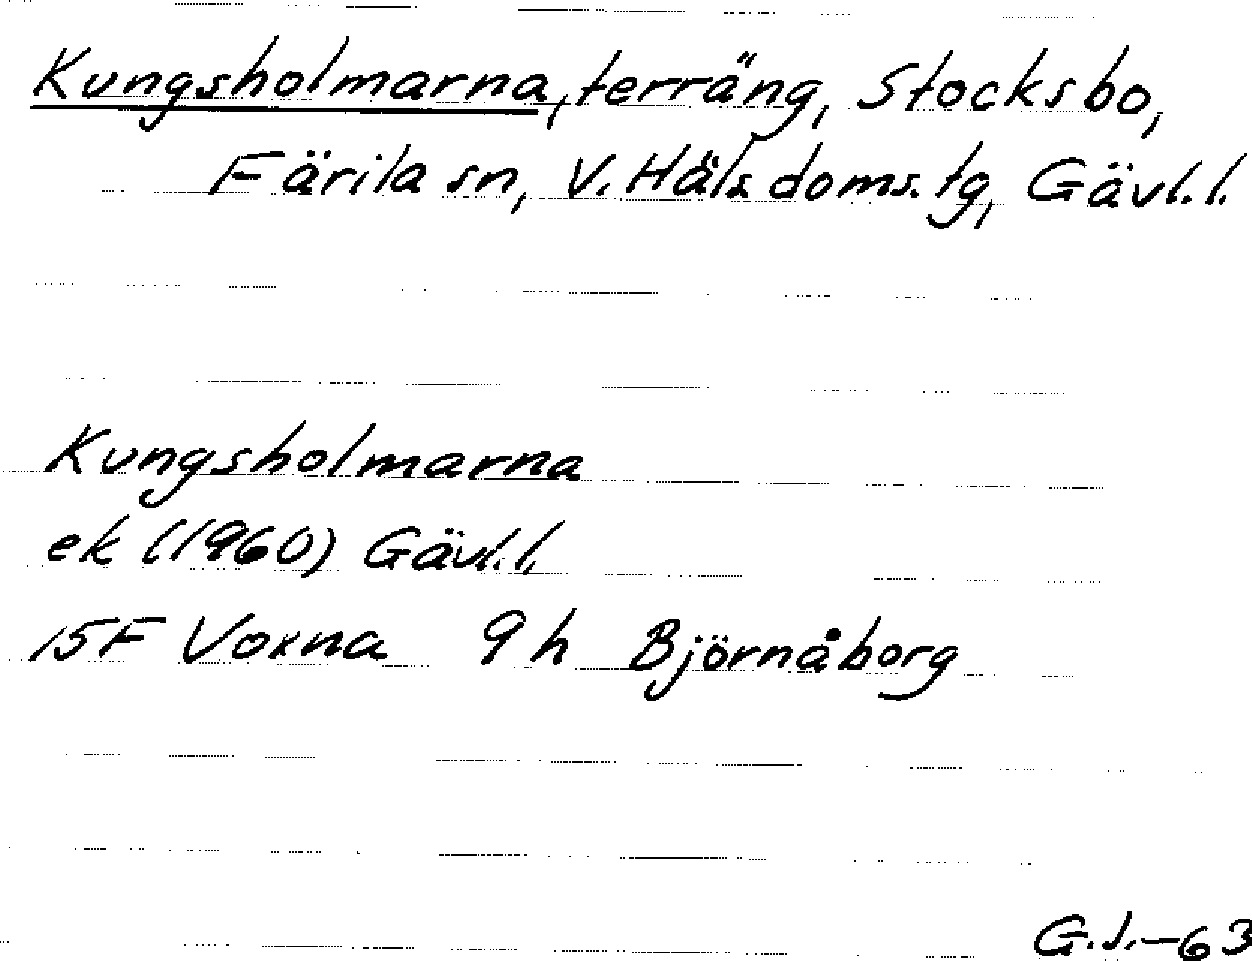 Kungsholmarna, terräng, Stocksbo,
Färila sn, V. Häls. doms. tg, Gävl. l.
Kungsholmarna
ek (1960) Gävl. l.
15F Voxna 9h Björnåborg
G.J.-63